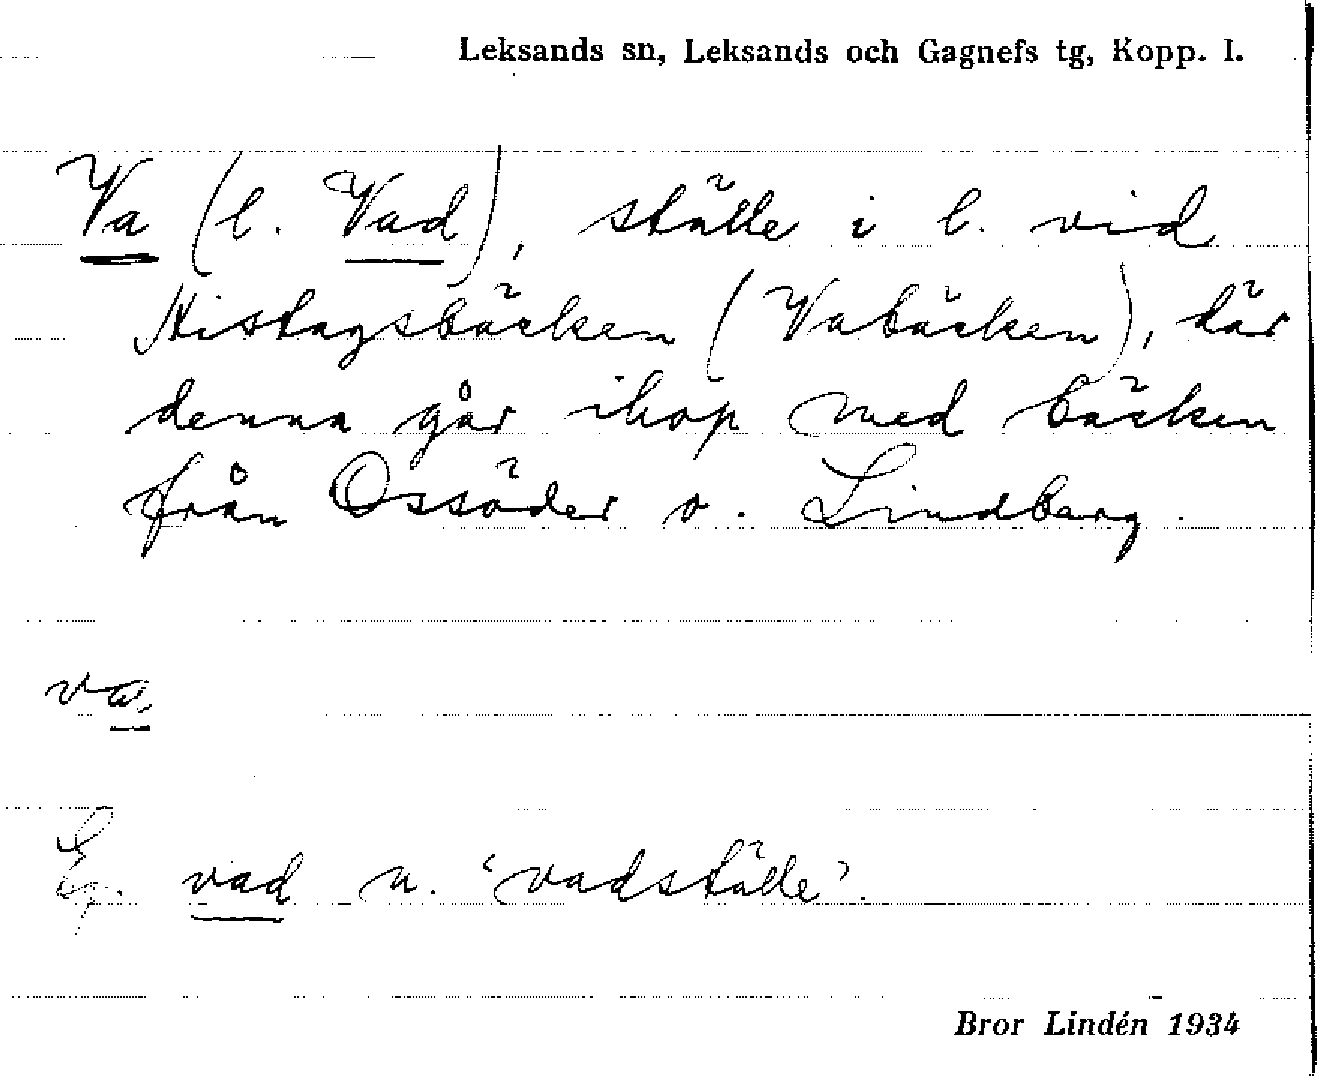 Leksands sn, Leksands och Gagnefs tg, Kopp. l.
Va (l. Vad), ställe i l. vid
Histagsbäcken (Vabäcken), där
denna går ihop med bäcken
från Ossöder o. Lindberg.
va,
Ep. vad n. 'vadställe'.
Bror Lindén 1934